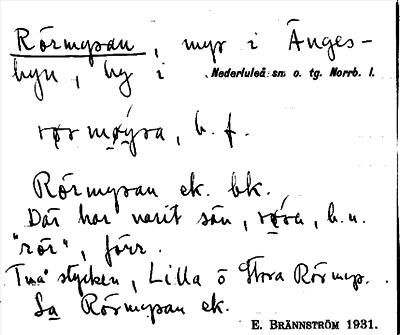 Rörmyran, myr i Änges-
byn, by i Nederluleå sn o. tg. Norrb. l.
rørmøyra, b. f.
Rörmyran ek. bk.
Där har varit sån, röra, b.n.
"rör", förr.
Två stycken, Lilla o Stora Rörmyr.
Sa Rörmyran ek.
E. BRÄNNSTRÖM 1931.